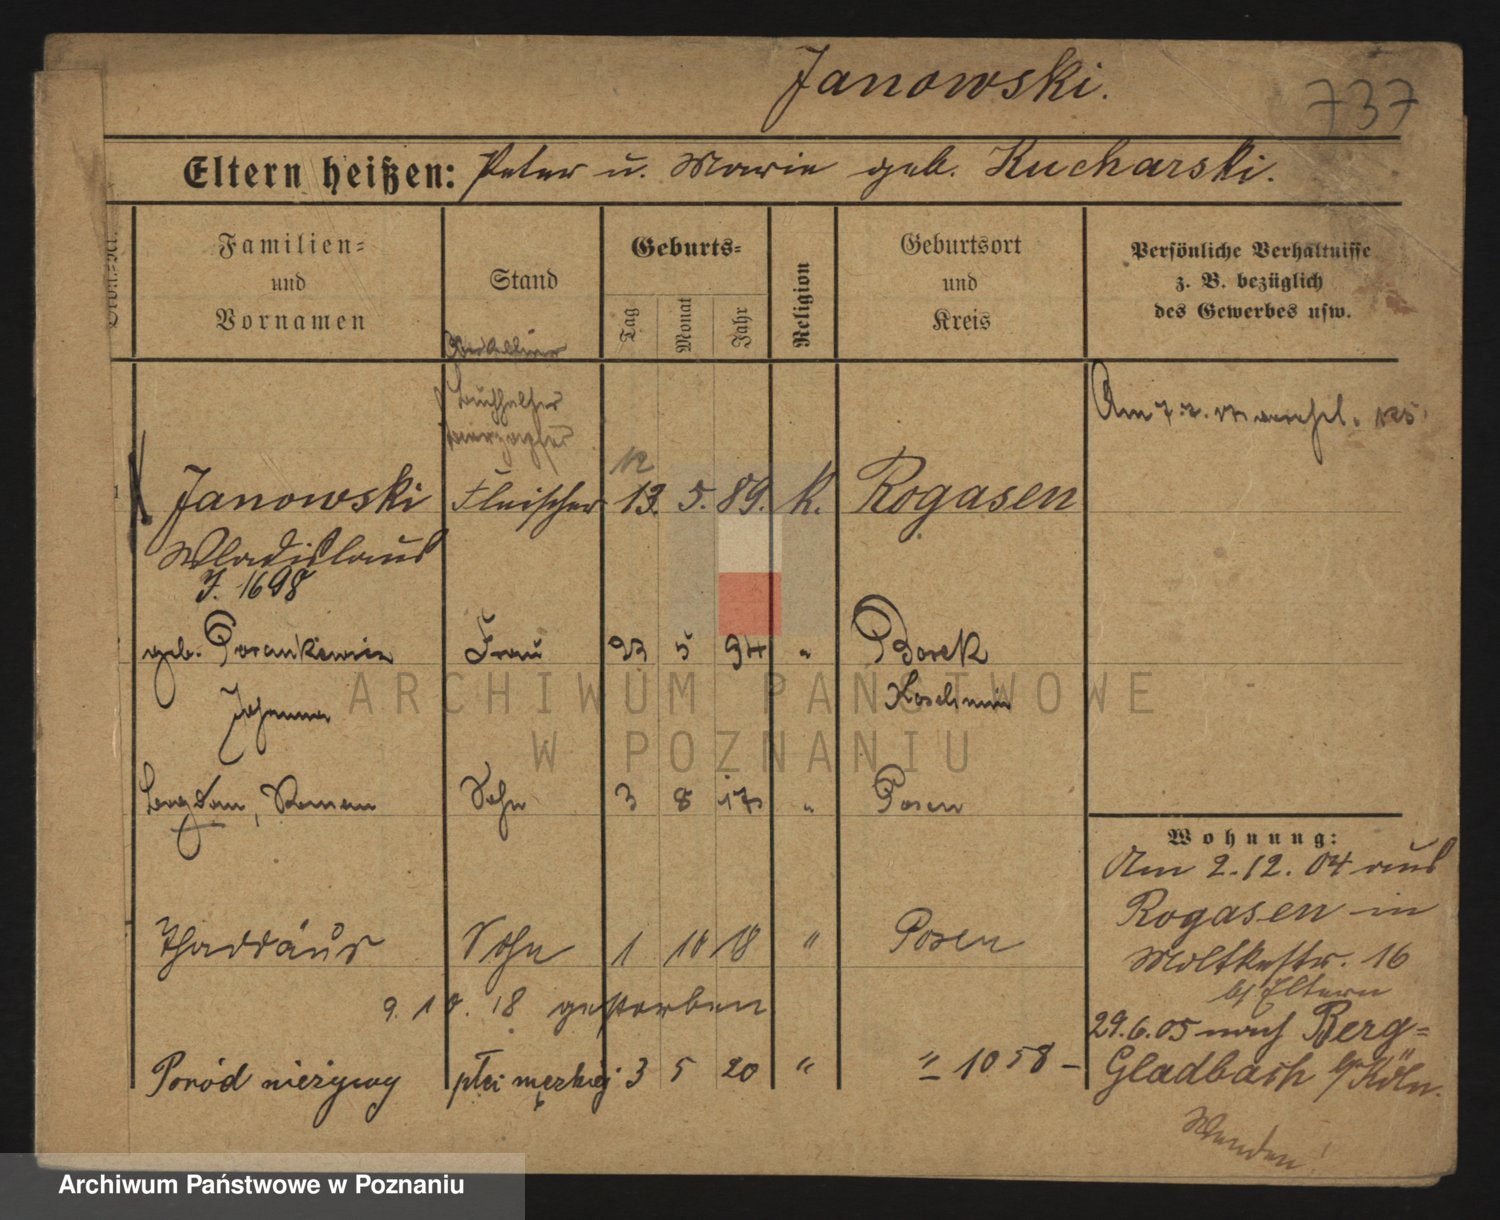 Janowski.
737
Eltern heißen: Peter u. Marie geb. Kucharski.
Familien=
und
Vornamen
Stand
Geburts=
Tag
Monat
Jahr
Religion
Geburtsort
und
Kreis
Persönliche Verhältnisse
z. B. bezüglich
des Gewerbes usw.
Am 7.2.
12
Janowski Fleischer 13. 5. 89. K. Rogasen
Wladislaus
J. 1698
geb. Porankiewicz Frau 23 5 94 " Borek
Johanna Koschmin
ARCHIWUM PAŃSTWOWE
W POZNANIU
Bogdan, Roman Sohn 3 8 17 " Posen
Wohnung:
Am 2.12.04 aus
Rogasen in
Moltkestr. 16
b/ Eltern
29.6.05 nach Berg=
Gladbach b/ Köln.
Thaddäus Sohn 1 10 18 " Posen
9. 10. 18 gestorben
Poród nieżywy płci męzkiej 3 5 20 " " 1058 -
Wenden!
Archiwum Państwowe w Poznaniu